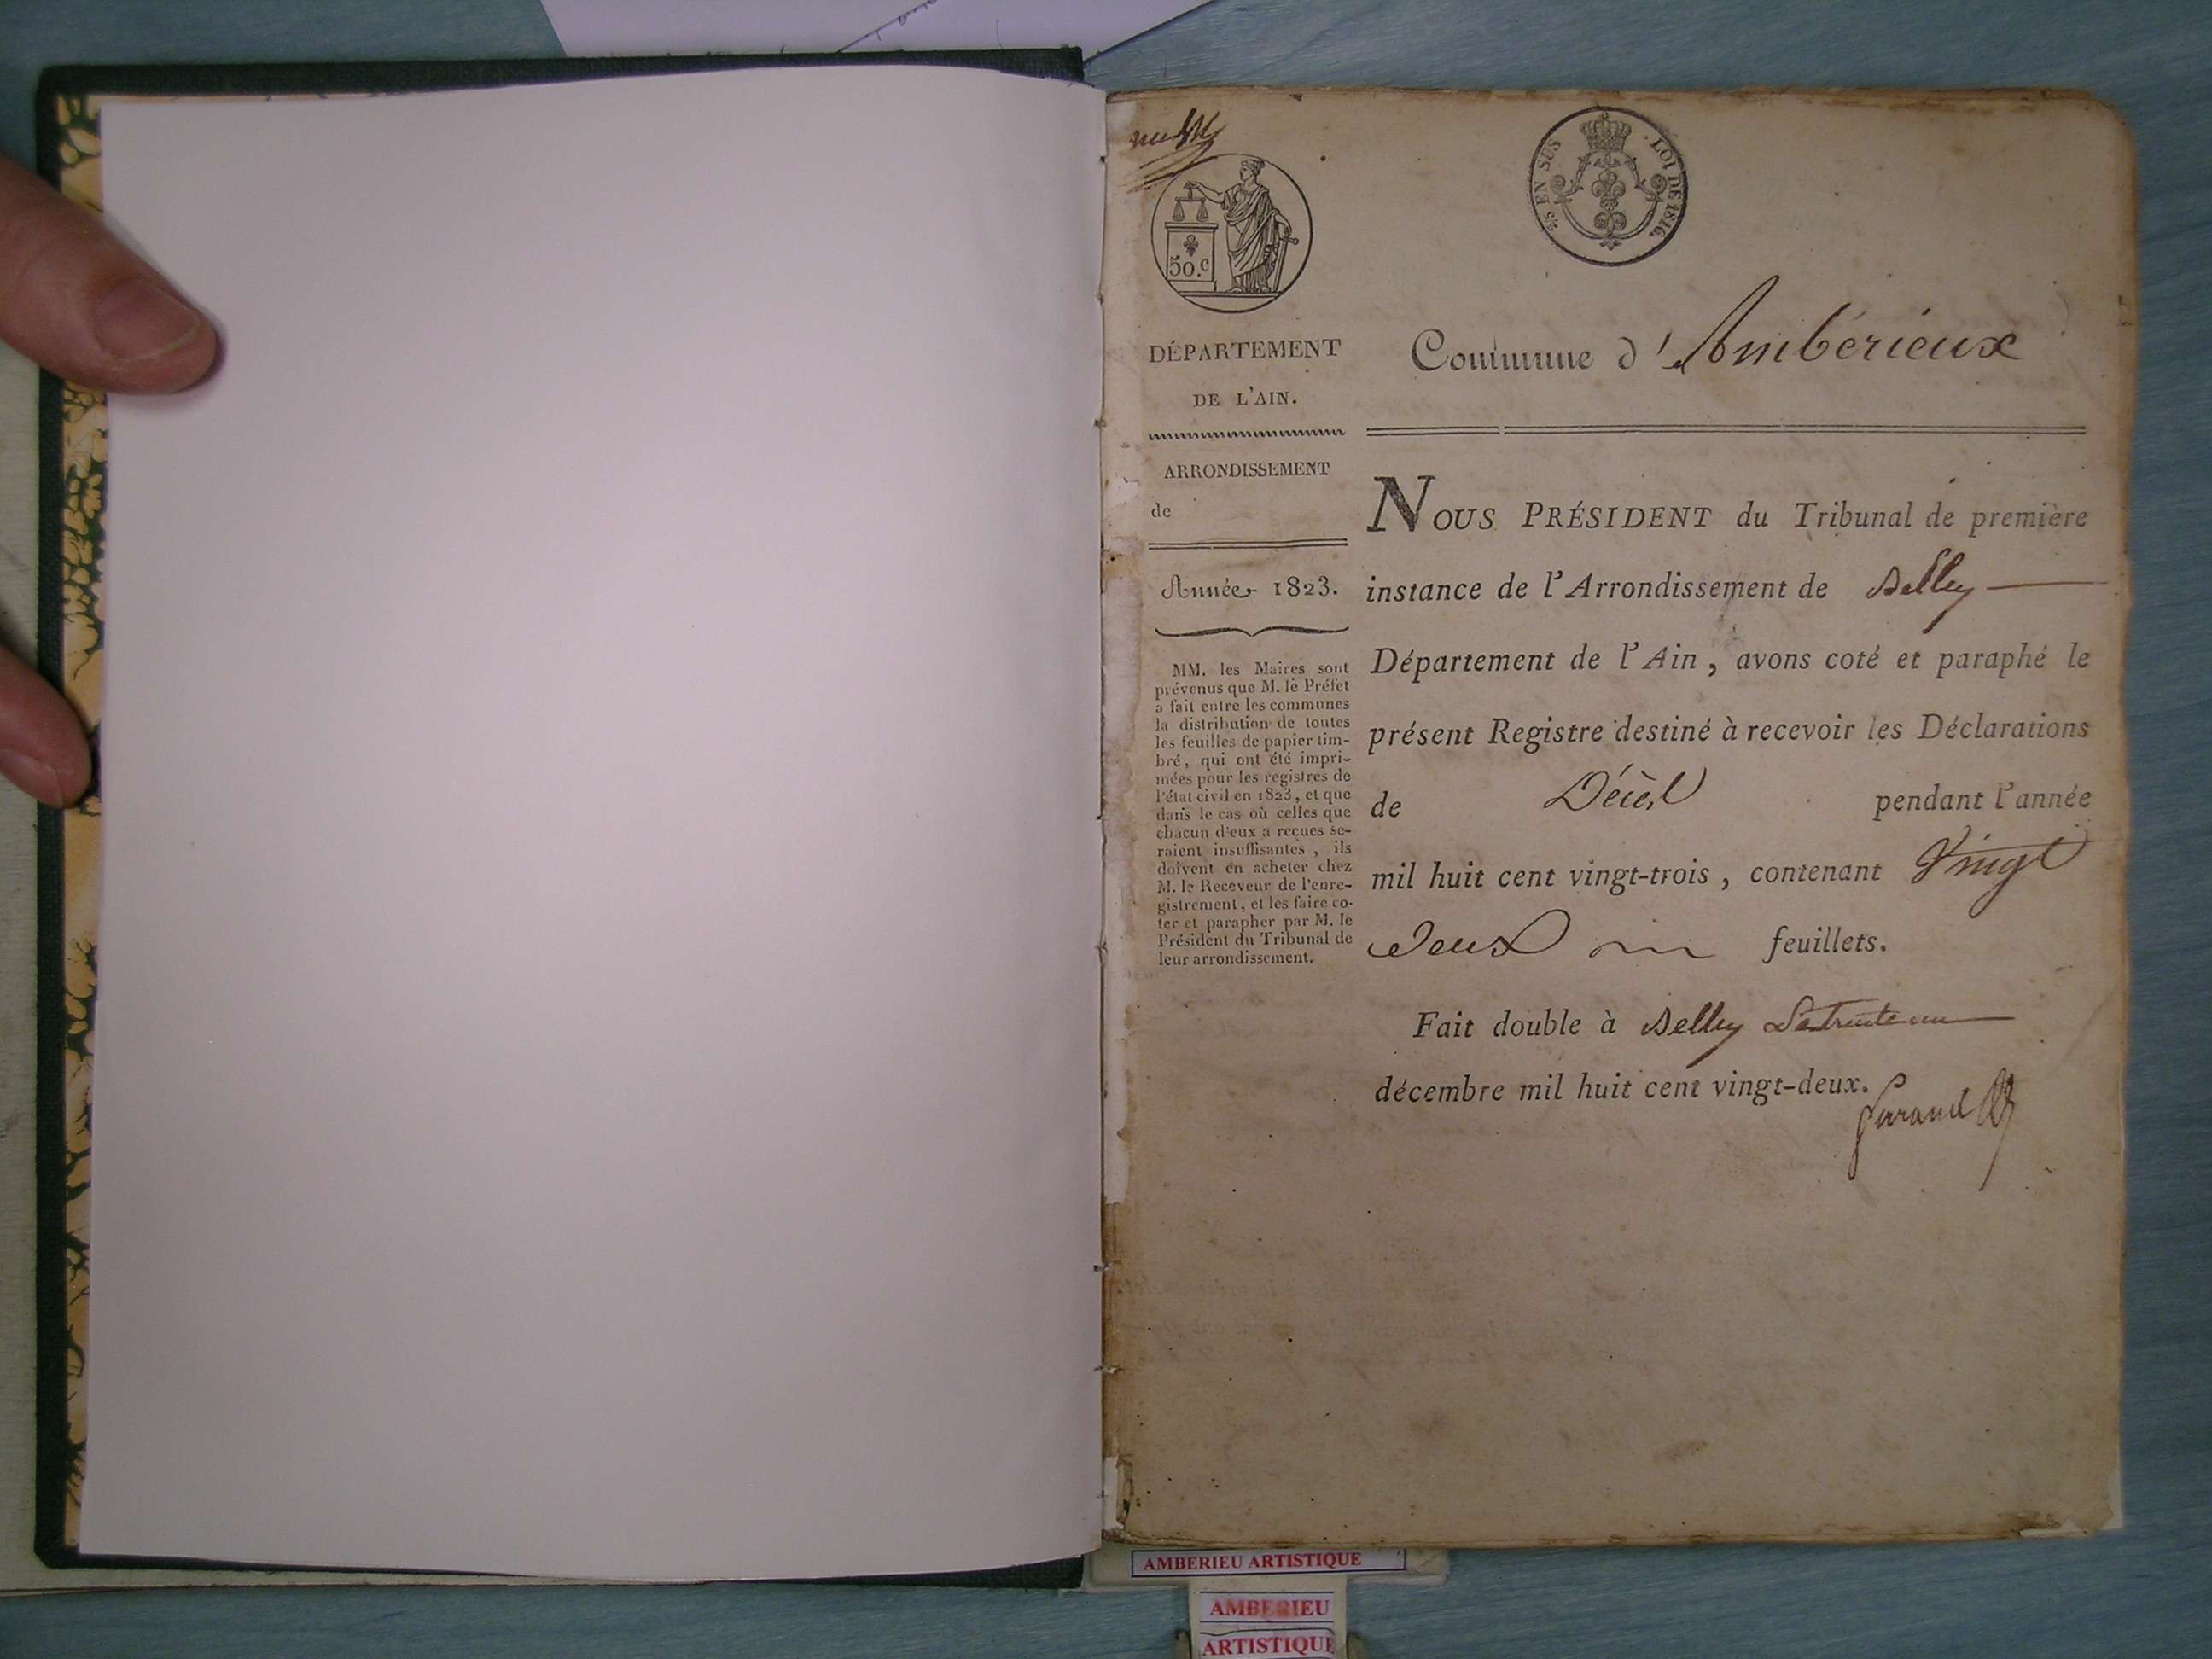 50.c
¼ EN SUS . LOI DE 1816.
DÉPARTEMENT
DE L'AIN.
ARRONDISSEMENT
de
Année 1823.
MM. les Maires sont
prévenus que M. le Préfet
a fait entre les communes
la distribution de toutes
les feuilles de papier tim-
bré, qui ont été impri-
mées pour les registres de
l'état civil en 1823, et que
dans le cas où celles que
chacun d'eux a reçues se-
raient insuffisantes, ils
doivent en acheter chez
M. le Receveur de l'enre-
gistrement, et les faire co-
ter et parapher par M. le
Président du Tribunal de
leur arrondissement.
Commune d'Ambérieux
NOUS PRÉSIDENT du Tribunal de première
instance de l'Arrondissement de Belley
Département de l'Ain, avons coté et paraphé le
présent Registre destiné à recevoir les Déclarations
de Décès pendant l'année
mil huit cent vingt-trois, contenant Vingt
deux feuillets.
Fait double à Belley Le trente un
décembre mil huit cent vingt-deux.
AMBERIEU ARTISTIQUE
AMBERIEU
ARTISTIQUE